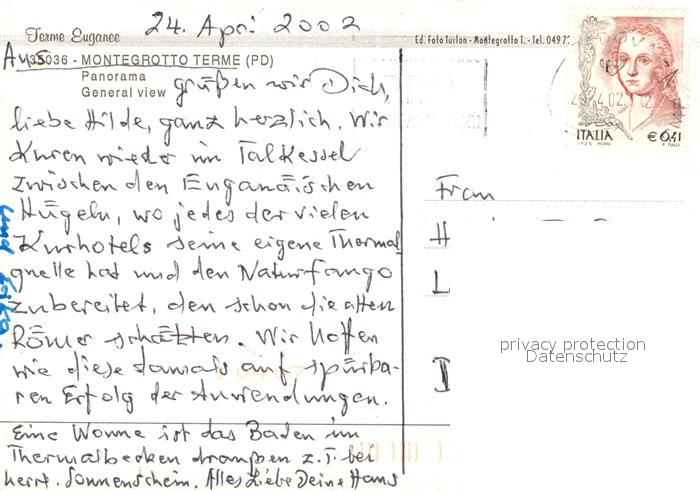 24. Apr. 2002
Terme Euganee
Ed. Foto Turlon - Montegrotto T. - Tel. 049 7
Aus 35036 - MONTEGROTTO TERME (PD)
Panorama
General view
grüßen wir Dich,
liebe Hilde, ganz herzlich. Wir
kuren wieder im Talkessel
zwischen den Euganäischen
Hügeln, wo jedes der vielen
Kurhotels seine eigene Thermal
quelle hat und den Naturfango
zubereitet, den schon die alten
Römer schätzten. Wir hoffen
wie diese damals auf spürba-
ren Erfolg der Anwendungen.
Eine Wonne ist das Baden im
Thermalbecken draußen z.T. bei
herrl. Sonnenschein. Alles Liebe Deine Hans
und Erika.
ITALIA
€0,41
I.P.Z.S. ROMA
Frau
H
L
D
privacy protection
Datenschutz